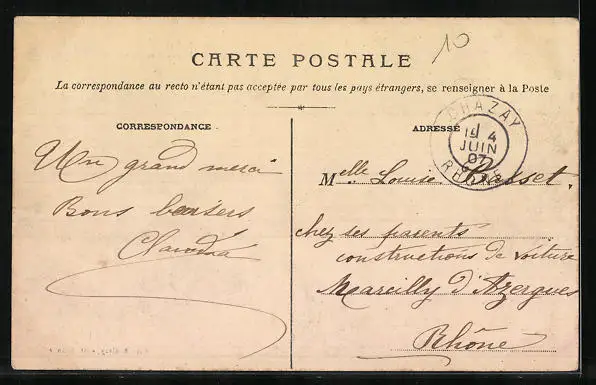 10
CARTE POSTALE
La correspondance au recto n'étant pas acceptée par tous les pays étrangers, se renseigner à la Poste
CORRESPONDANCE
ADRESSE
CHAZAY
4
JUIN
07
RHÔNE
Un grand merci
Bons baisers
Claudia
Melle Louise
chez ses parents
constructions de voiture
Marcilly d'Azergues
Rhône